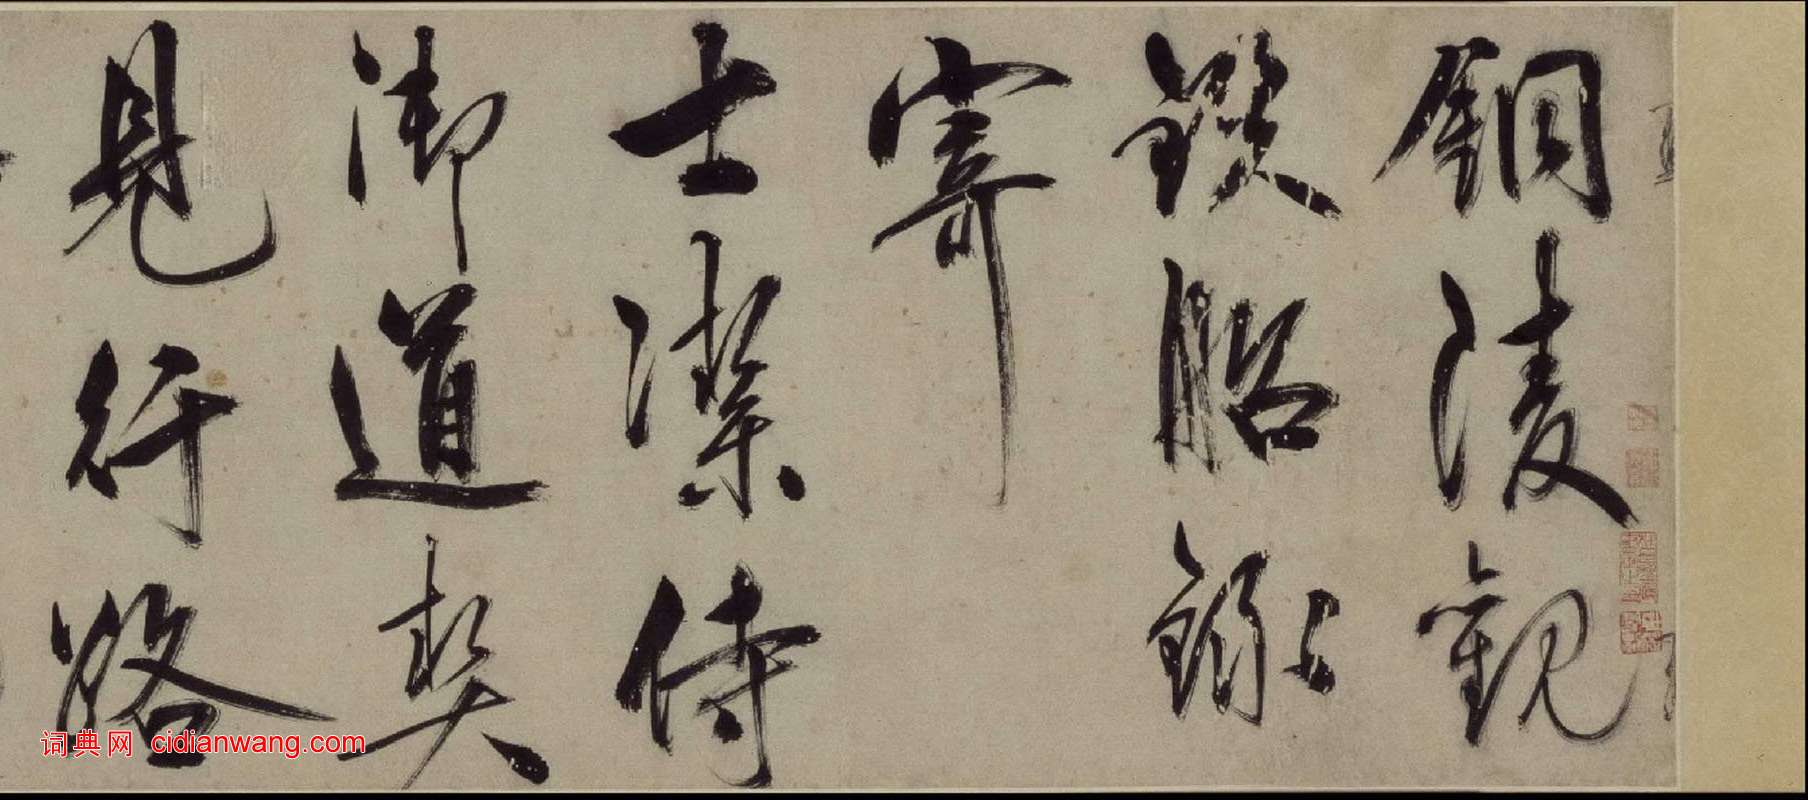 銅陵觀
鐵船錄
寄
士潔侍
御道契
見行路
词典网 cidianwang.com